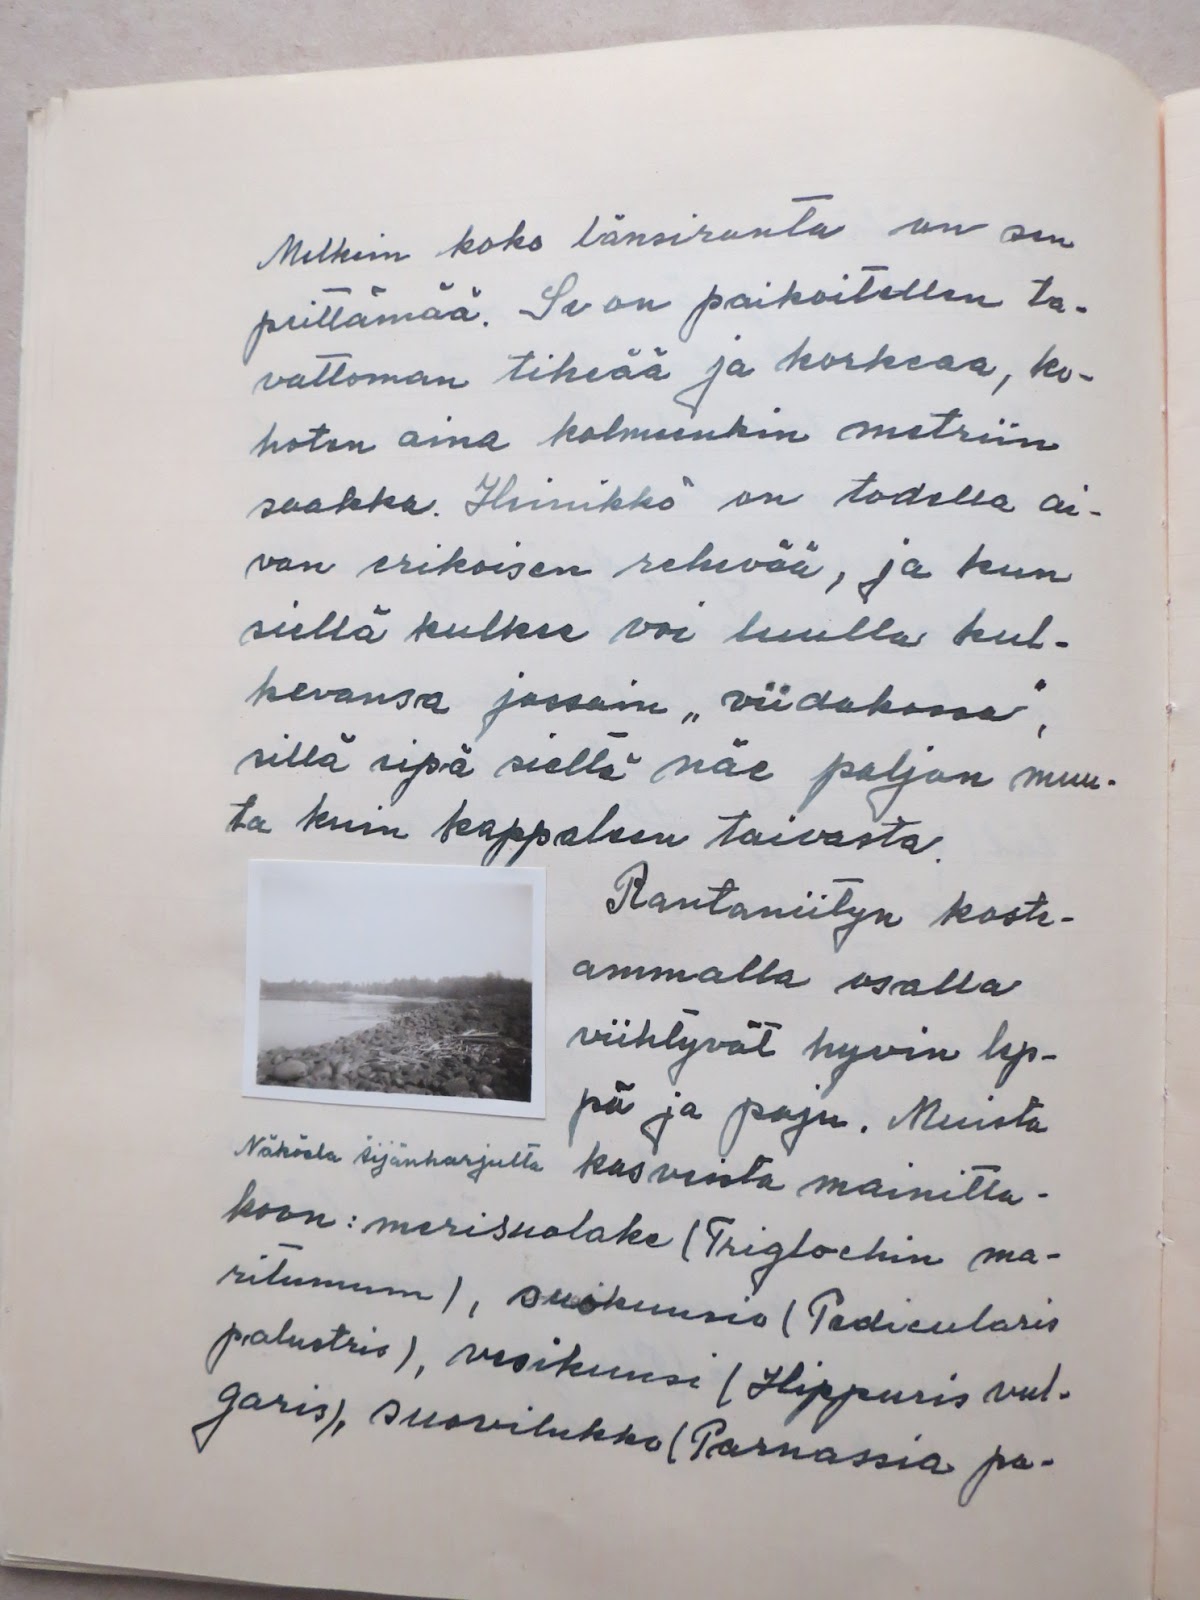 Melkein koko länsiranta on sen
peittämää. Se on paikoitellen ta-
vattoman tiheää ja korkeaa, ko-
hoten aina kolmeenkin metriin
saakka. Heinikkö on todella ai-
van erikoisen rehevää, ja kun
siellä kulkee voi luulla kul-
kevansa jossain „viidakossa“,
sillä eipä sieltä näe paljon muu-
ta kuin kappaleen taivasta.
Rantaniityn koste-
ammalla osalla
viihtyvät hyvin lep-
pä ja paju. Muista
Näköala Äijänharjulta
kasveista mainitta-
koon: merisuolake (Triglochin ma-
ritumum), suokuusio (Pedicularis
palustris), vesikuusi (Hippuris vul-
garis), suovilukko (Parnassia pa-